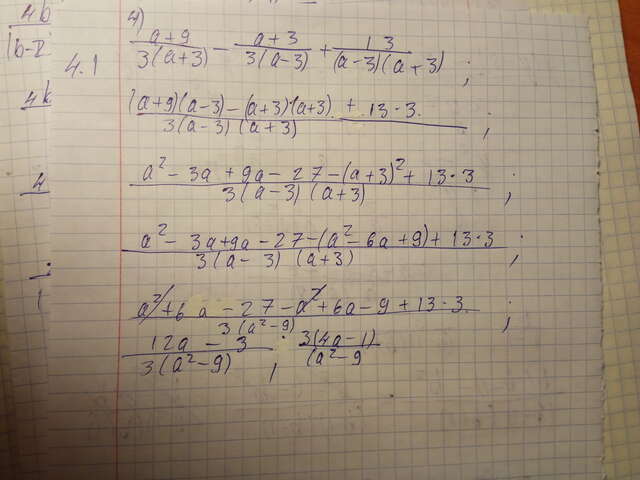 4b
4)
(a+9)/(3(a+3)) - (a+3)/(3(a-3)) + 13/((a-3)(a+3)) ;
|b-2
4.1
((a+9)(a-3)-(a+3)·(a+3) + 13·3)/(3(a-3)(a+3)) ;
(a²-3a+9a-27-(a+3)²+13·3)/(3(a-3)(a+3)) ;
4
(a²-3a+9a-27-(a²-6a+9)+13·3)/(3(a-3)(a+3)) ;
(a²+6a-27-a²+6a-9+13·3)/(3(a²-9)) ;
(12a-3)/(3(a²-9)) ; 3(4a-1)/(a²-9